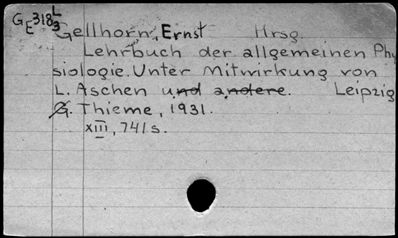 GE318 L3
Gellhorn, Ernst Hrsg.
Lehrbuch der allgemeinen Phy
siologie. Unter Mitwirkung von
L. Aschen und andere. Leipzig
G. Thieme, 1931.
XIII, 741 s.